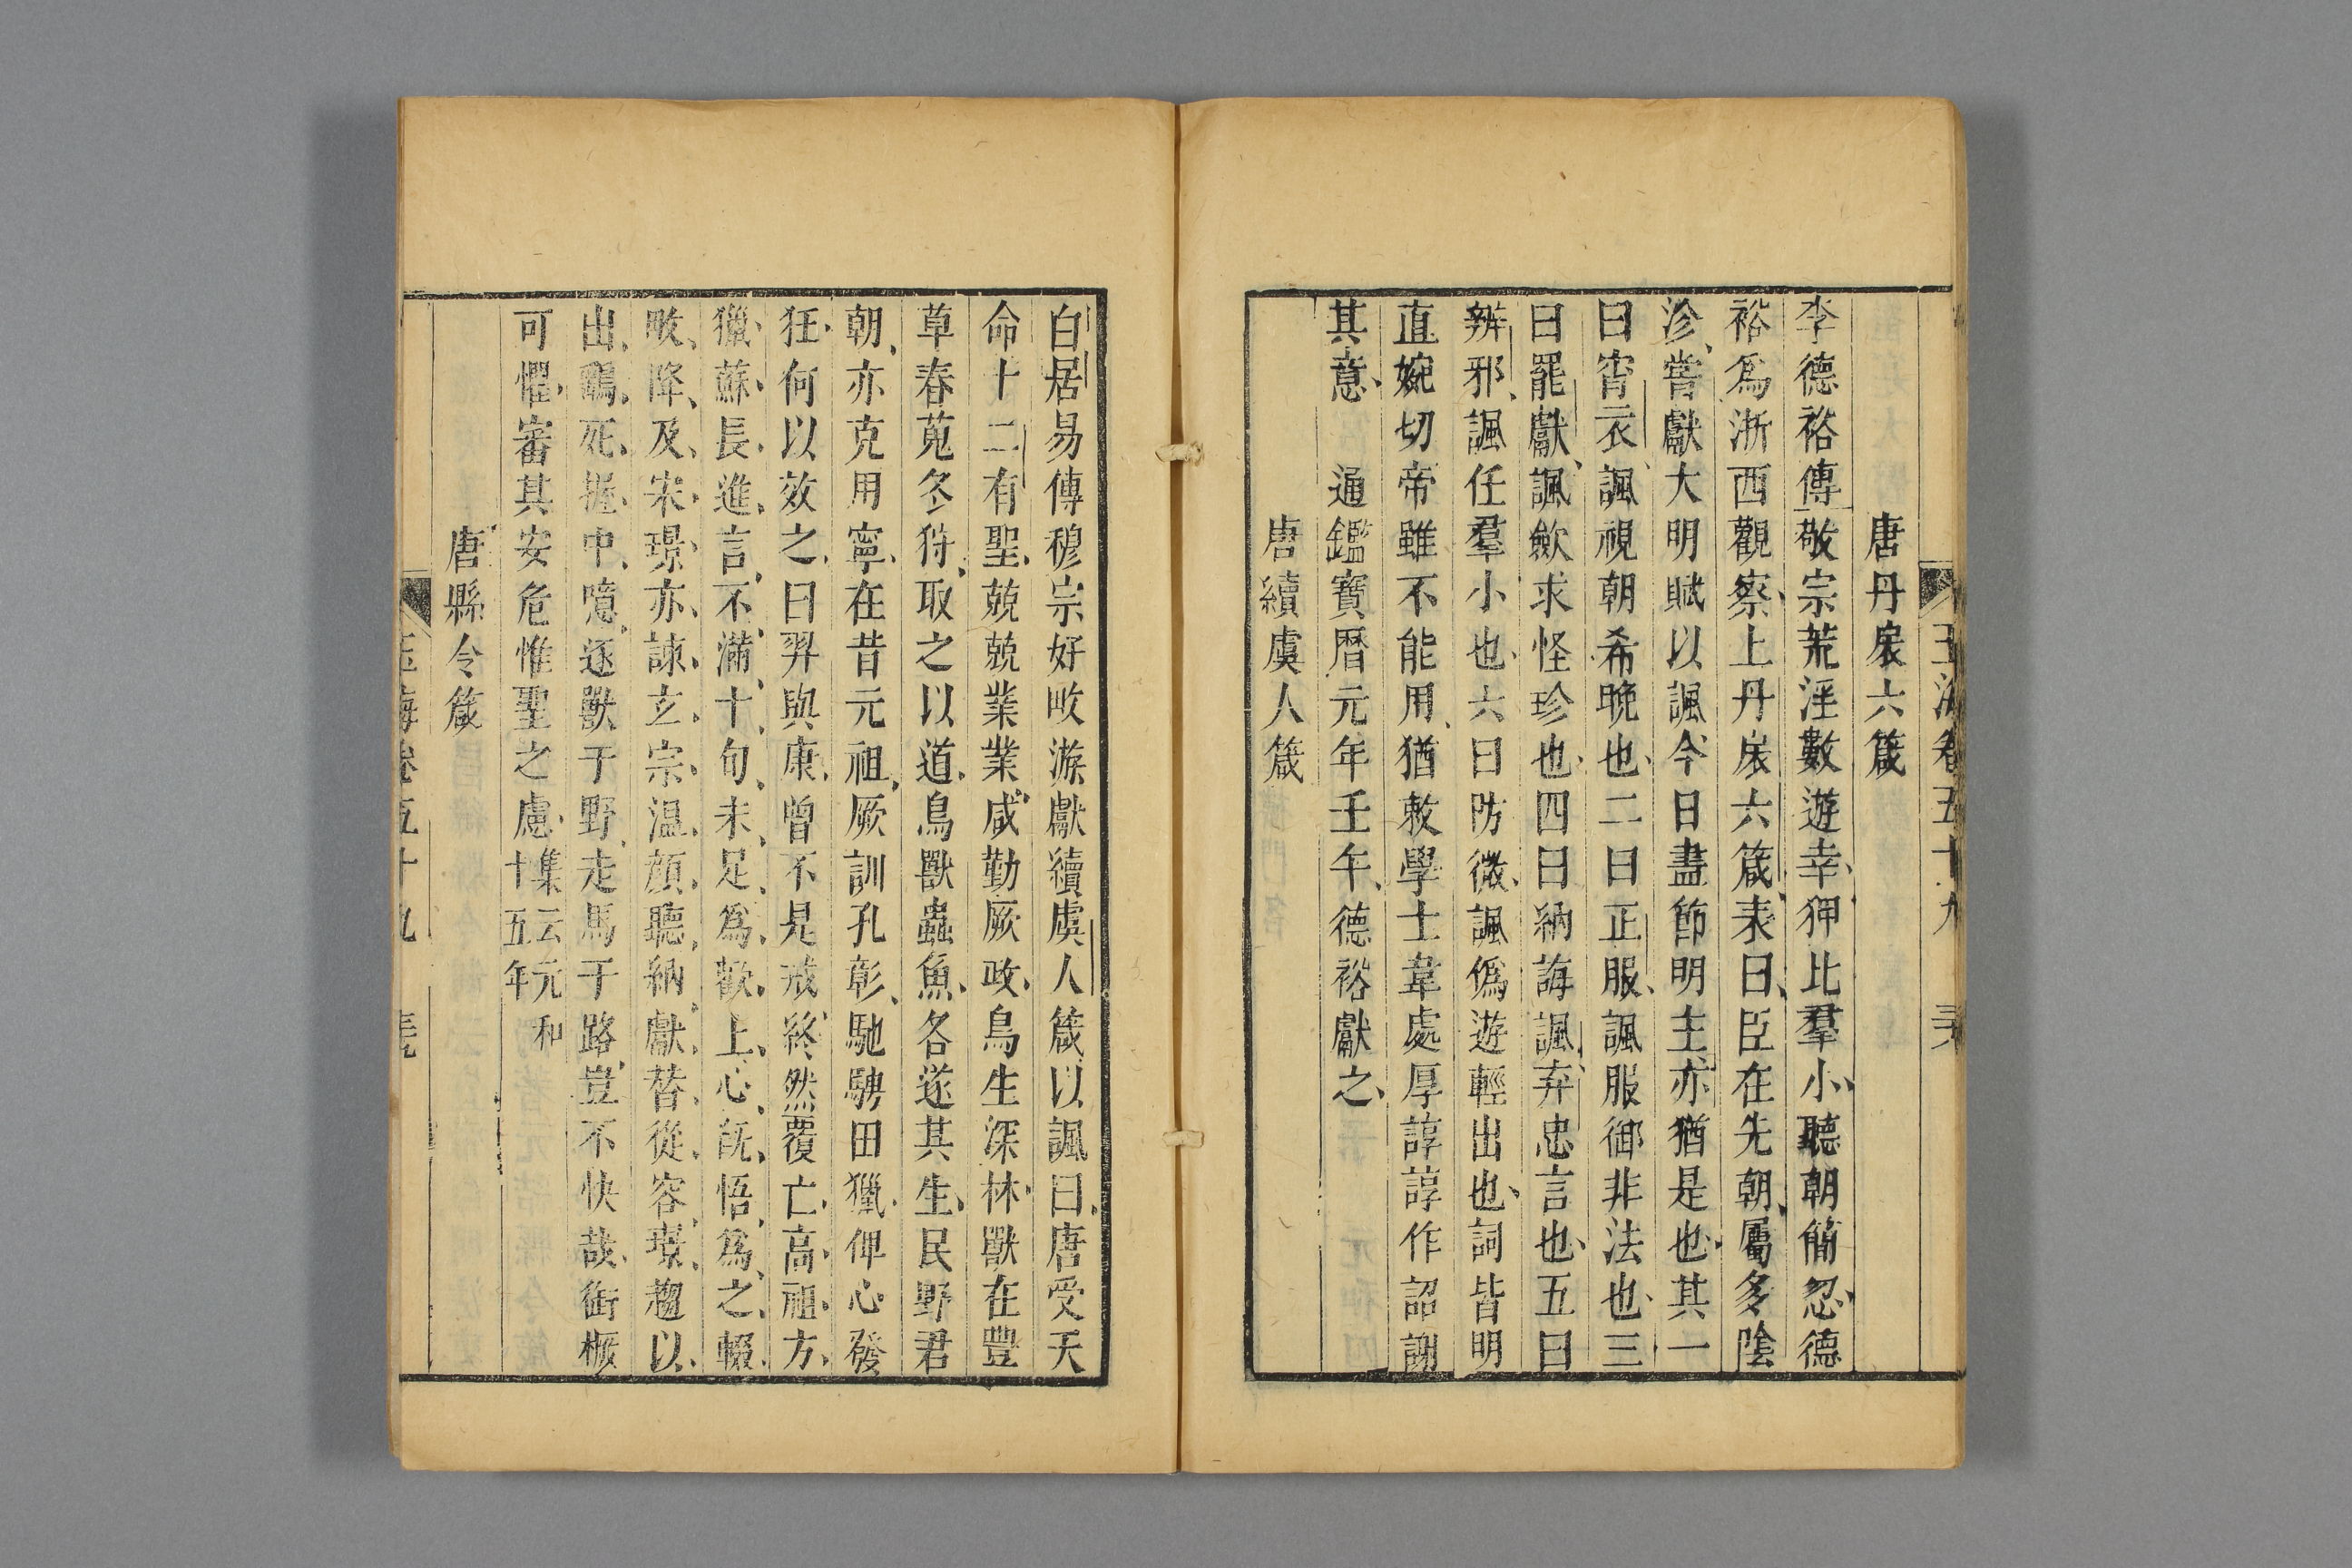 玉海卷五十九
唐丹扆六箴
李德裕傳敬宗荒淫數遊幸狎比羣小聽朝簡忽德
裕爲浙西觀察上丹扆六箴表曰臣在先朝屬多陰
沴嘗獻大明賦以諷今日盡節明主亦猶是也其一
曰宵衣諷視朝希晚也二曰正服諷服御非法也三
曰罷獻諷歛求怪珍也四曰納誨諷弃忠言也五曰
辨邪諷任羣小也六曰防微諷僞遊輕出也詞皆明
直婉切帝雖不能用猶敕學士韋處厚諄諄作詔謝
其意 通鑑寶曆元年壬午德裕獻之
唐續虞人箴
白居易傳穆宗好畋游獻續虞人箴以諷曰唐受天
命十二有聖兢兢業業咸勤厥政鳥生深林獸在豐
草春蒐冬狩取之以道鳥獸蟲魚各遂其生民野君
朝亦克用寧在昔元祖厥訓孔彰馳騁田獵俾心發
狂何以效之曰羿與康曾不是戒終然覆亡高祖方
獵蘇長進言不滿十旬未足爲歡上心旣悟爲之輟
畋降及宋璟亦諫玄宗温顔聽納獻替從容璟趨以
出鷂死握中噫逐獸于野走馬于路豈不快哉銜橛
可懼審其安危惟聖之慮集云元和十五年
唐縣令箴
玉海卷五十九